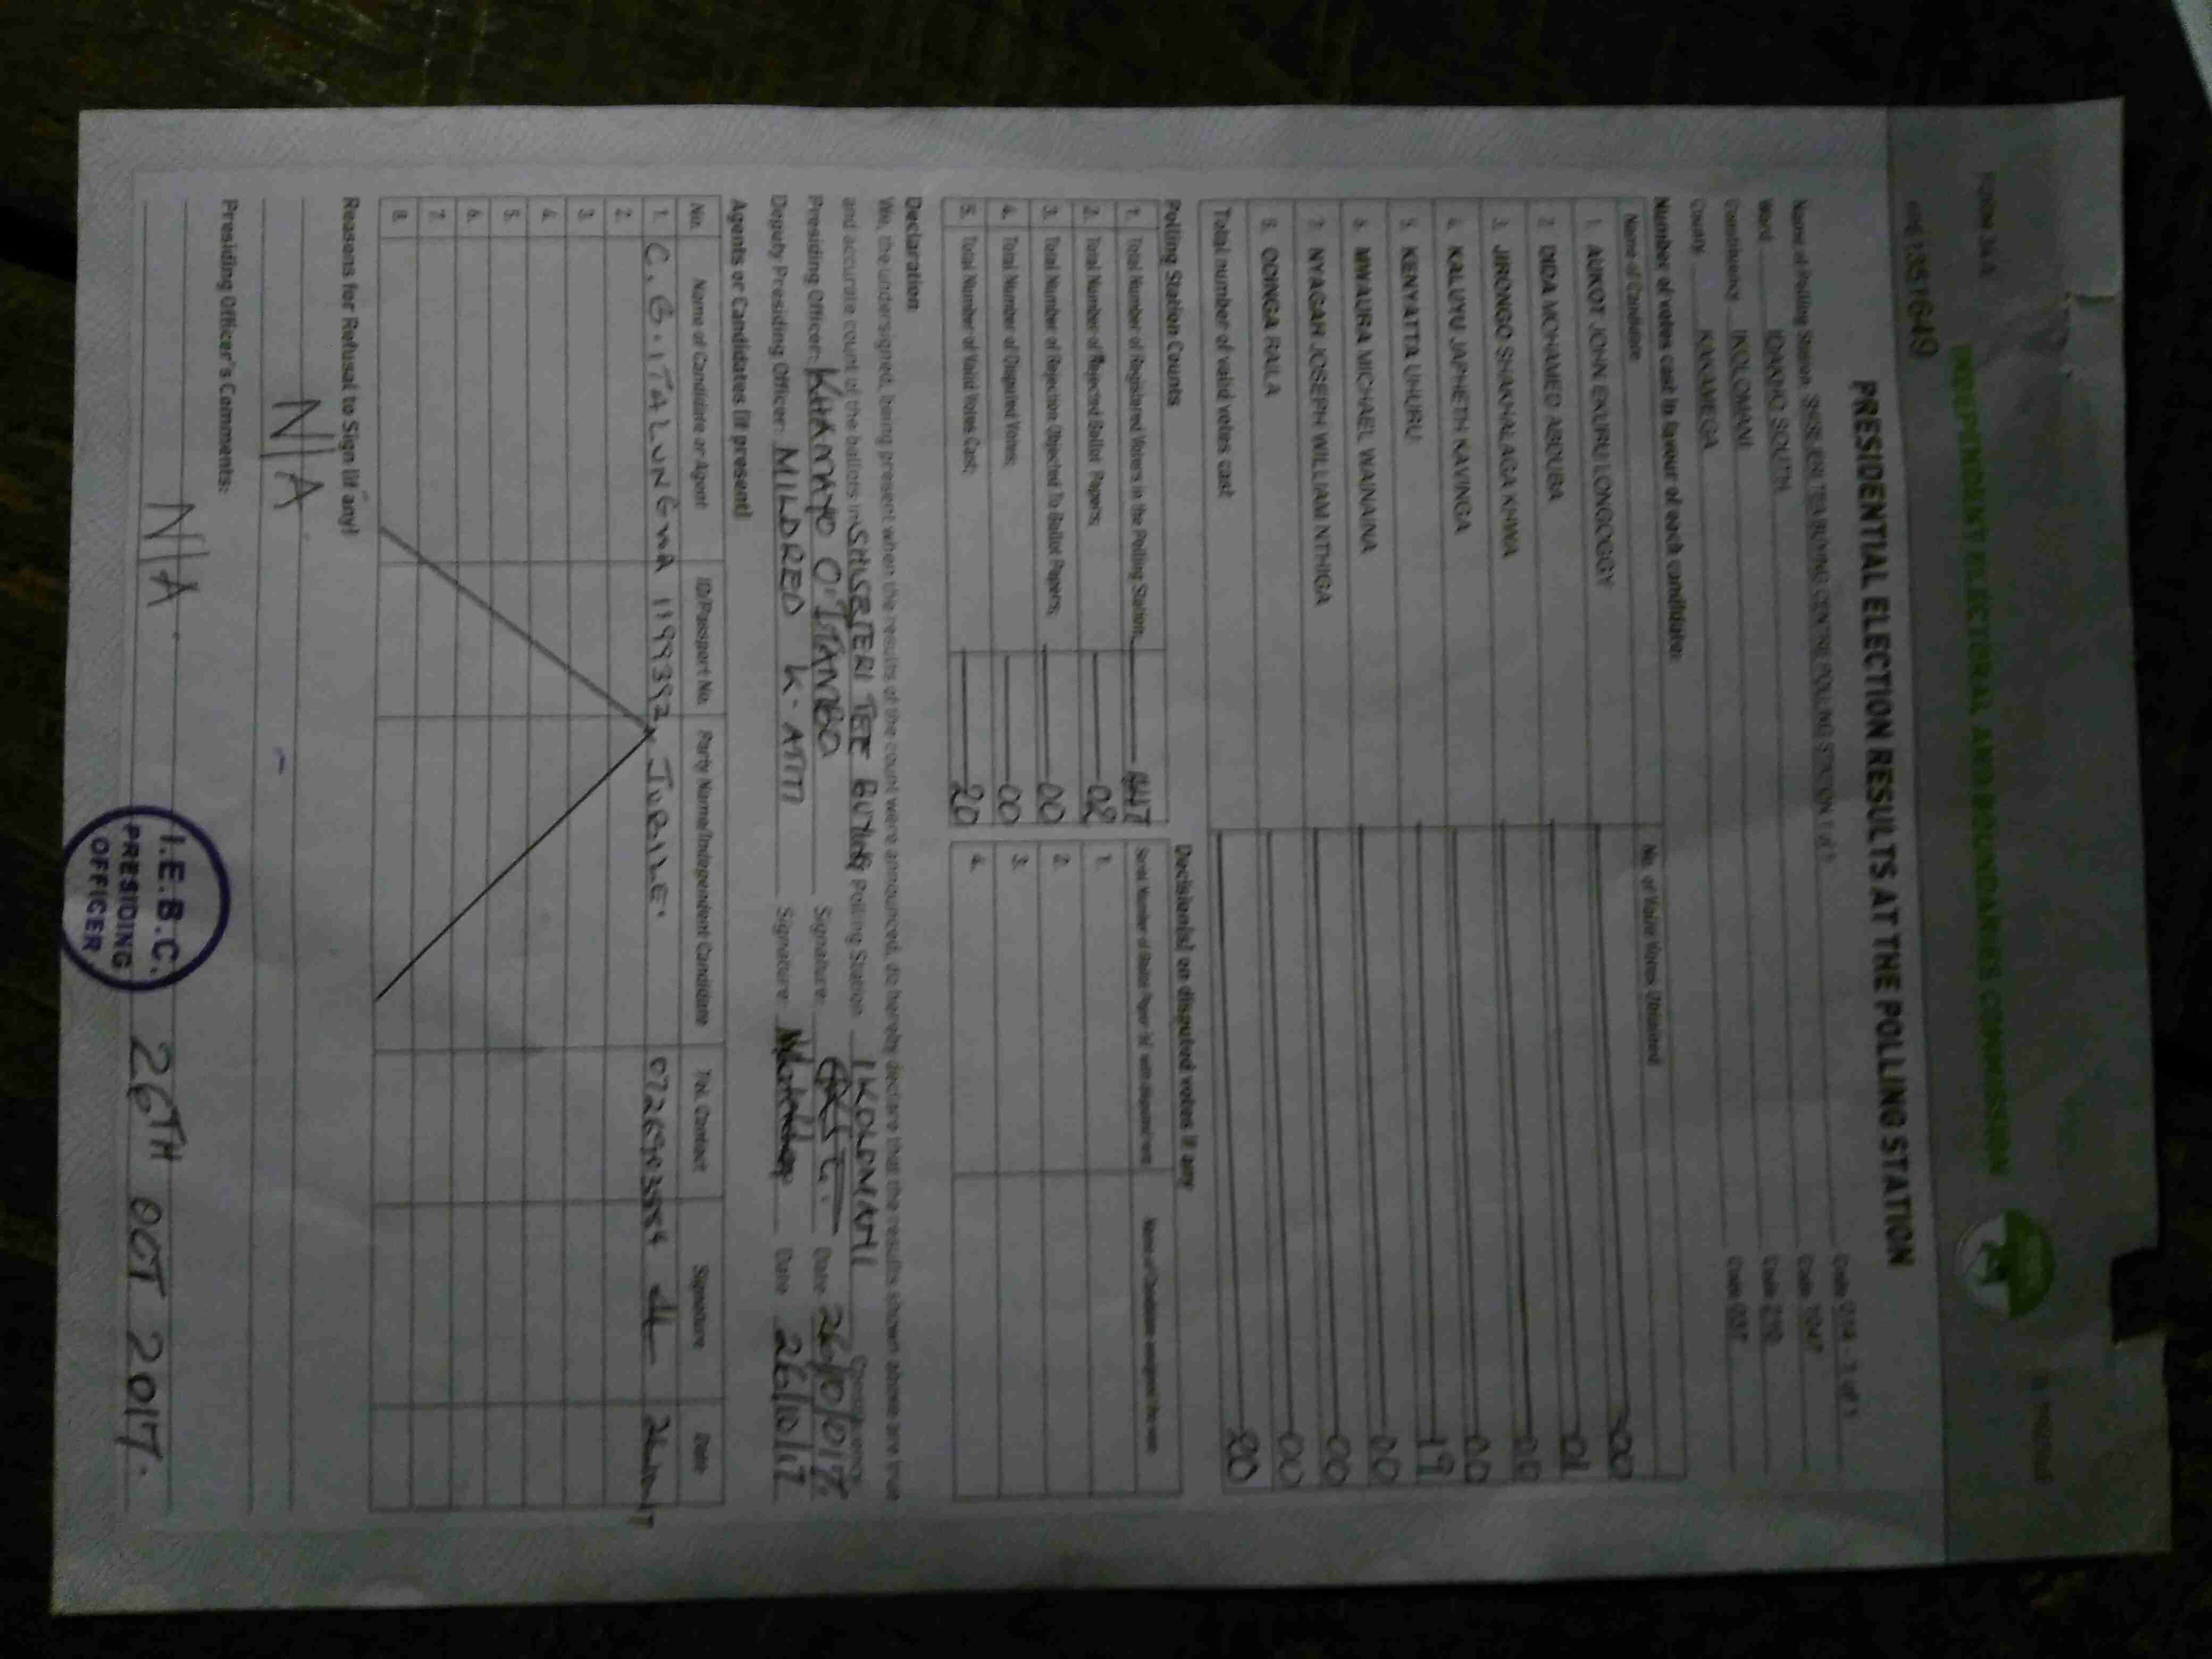 FORM 34A
INDEPENDENT ELECTORAL AND BOUNDARIES COMMISSION
1351649
PRESIDENTIAL ELECTION RESULTS AT THE POLLING STATION
Name of Polling Station SHISEJERI TEA BUYING CENTRE POLLING STATION 1 of 1 Code 014 - 1 of 1
Ward IDAKHO SOUTH Code 1047
Constituency IKOLOMANI Code 210
County KAKAMEGA Code 037
Number of votes cast in favour of each candidate:
Name of Candidate No. of Valid Votes Obtained
1. AUKOT JOHN EKURU LONGOGGY 00
2. DIDA MOHAMED ABDUBA 01
3. JIRONGO SHAKHALAGA KHWA 00
4. KALUYU JAPHETH KAVINGA 00
5. KENYATTA UHURU 19
6. MWAURA MICHAEL WAINAINA 00
7. NYAGAH JOSEPH WILLIAM NTHIGA 00
8. ODINGA RAILA 00
Total number of valid votes cast 20
Polling Station Counts
1. Total Number of Registered Voters in the Polling Station
2. Total Number of Rejected Ballot Papers; 02
3. Total Number of Rejection Objected To Ballot Papers; 00
4. Total Number of Disputed Votes; 00
5. Total Number of Valid Votes Cast; 20
Decision(s) on disputed votes if any
1.
2.
3.
4.
Declaration
We, the undersigned, being present when the results of the count were announced, do hereby declare that the results shown above are true
and accurate count of the ballots in TEE BUYING Polling Station IKOLOMANI Constituency
Presiding Officer: KHAMAYO Signature: Date
Deputy Presiding Officer: MILDRED K. Signature Date 26/10/17
Agents or Candidates (if present)
No. Name of Candidate or Agent ID/Passport No. Party Name/Independent Candidate Tel. Contact Signature Date
1. 11993922
2.
3.
4.
5.
6.
7.
8.
Reasons for Refusal to Sign (if any)
N/A
Presiding Officer's Comments:
N/A.
I.E.B.C.
PRESIDING
OFFICER
26TH OCT 2017.